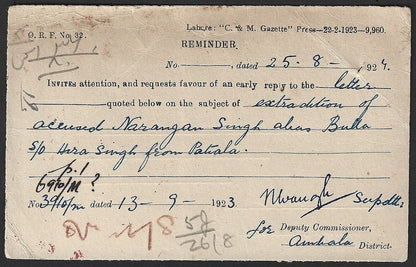 O. R. F. No. 32.
Lahore: "C. & M. Gazette" Press—22-2-1923—9,960.
REMINDER.
No. ———, dated 25-8- 1924.
INVITES attention, and requests favour of an early reply to the letter
quoted below on the subject of extradition of
accused Narangan Singh alias Buta
s/o Hira Singh from Patiala.
P.1
690/M ?
No 390/M dated 13-9-1923
Supdt:
for Deputy Commissioner,
Ambala District.
58
26/8